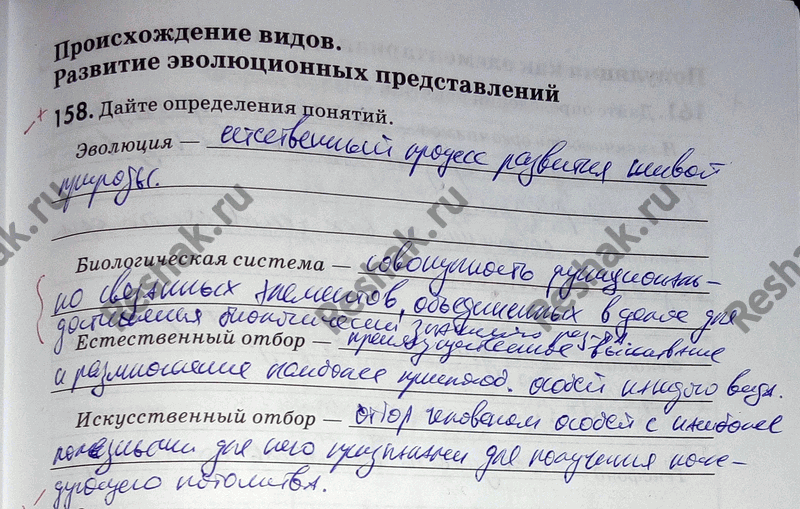 Происхождение видов.
Развитие эволюционных представлений
158. Дайте определения понятий.
Эволюция — естественный процесс развития живой
природы.
Биологическая система — совокупность функциональ-
но связанных элементов, объединенных в целое для
достижения биологически значимого результ.
Естественный отбор — преимущественное выживание
и размножение наиболее приспособ. особей каждого вида.
Искусственный отбор — отбор человеком особей с наиболее
полезными для него признаками для получения после-
дующего потомства.
Reshak.ru
Reshak.ru
Reshak.ru
Reshak.ru
Reshak.ru
Reshak.ru